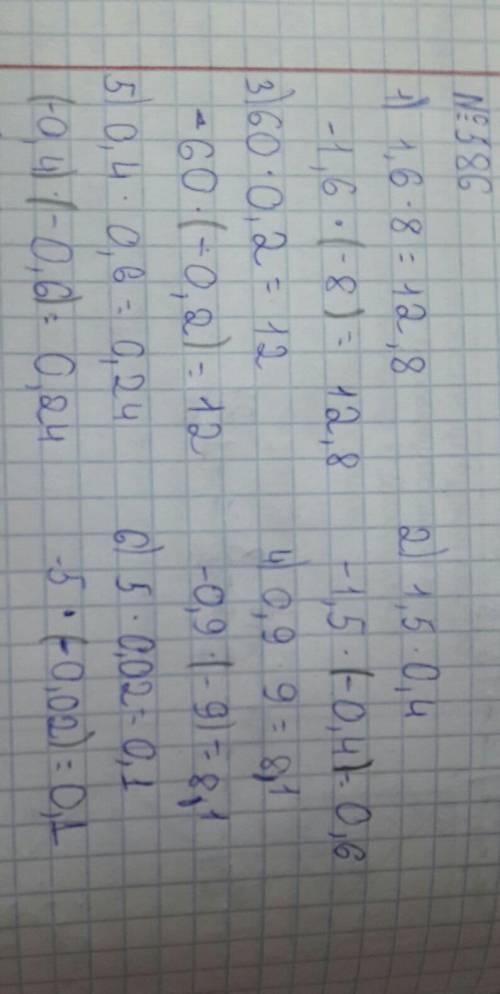 №586
1) 1,6 · 8 = 12,8
-1,6 · (-8) = 12,8
2) 1,5 · 0,4
-1,5 · (-0,4) = 0,6
3) 60 · 0,2 = 12
-60 · (-0,2) = 12
4) 0,9 · 9 = 8,1
-0,9 · (-9) = 8,1
5) 0,4 · 0,6 = 0,24
(-0,4) · (-0,6) = 0,24
6) 5 · 0,02 = 0,1
-5 · (-0,02) = 0,1